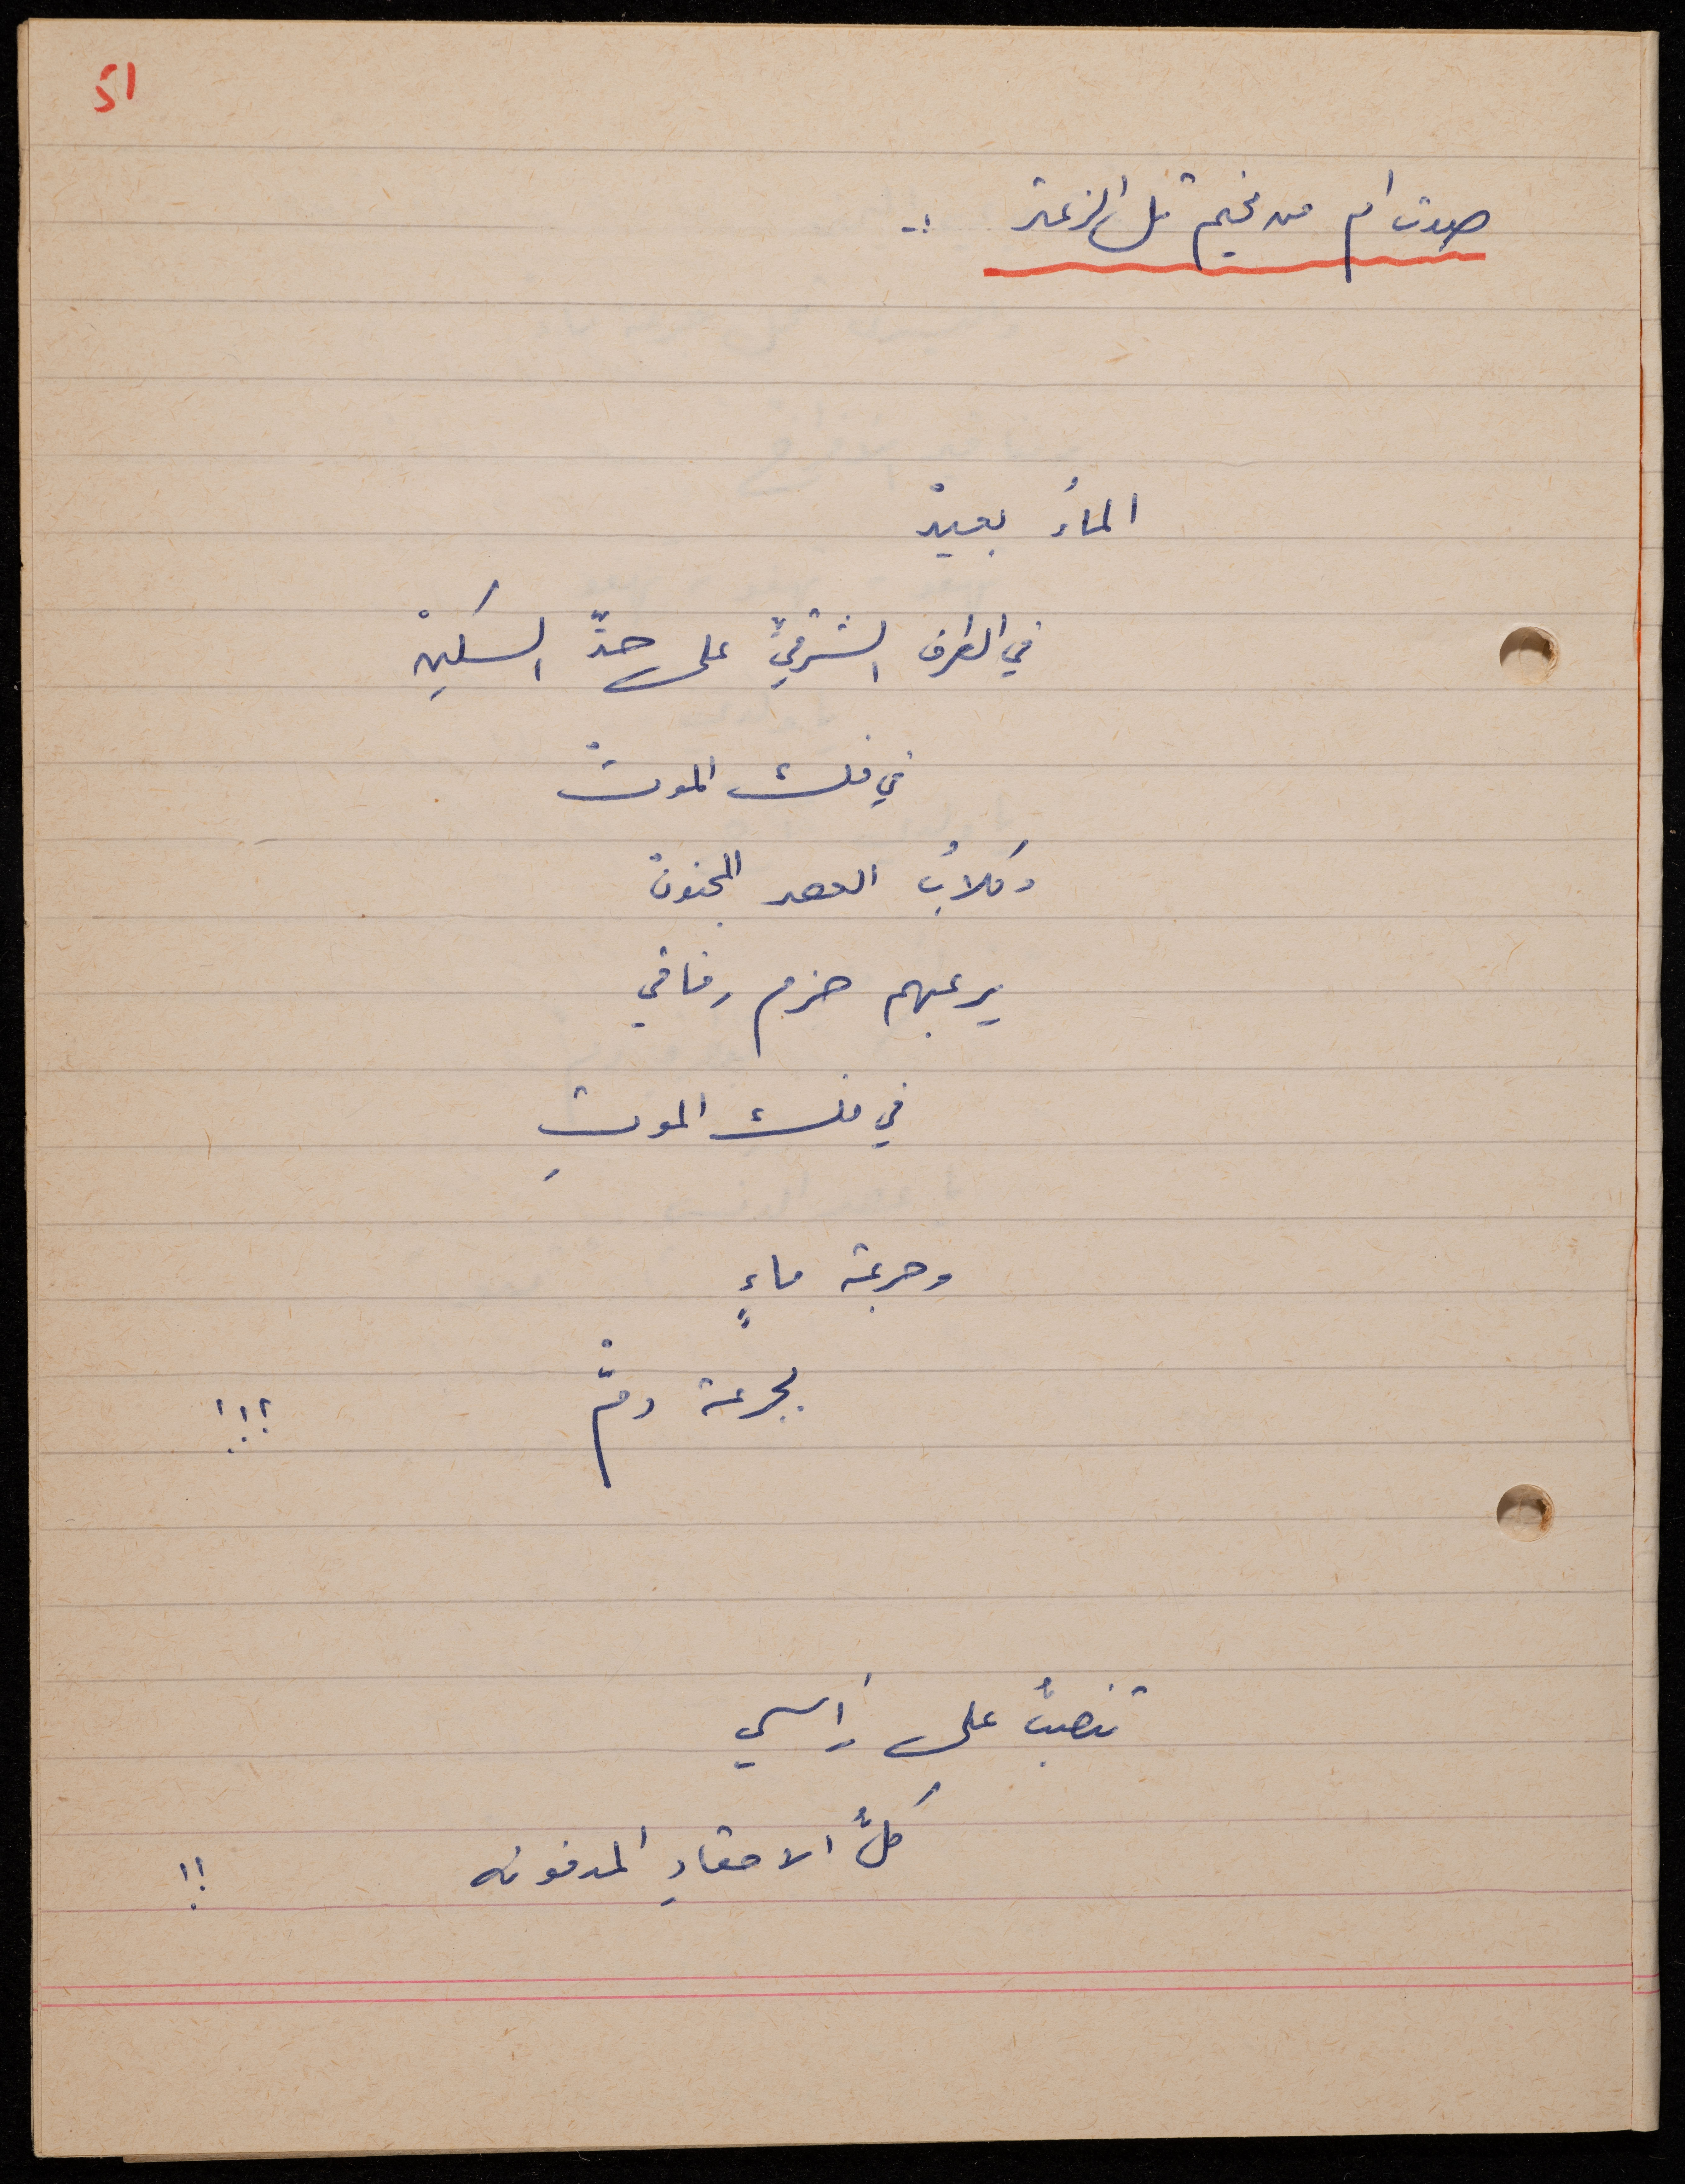 51
صوت ام من مخيم تل الزعتر :-
الماءُ بعيدْ
في الطرف الشرقيِّ على حدِّ السكينْ
في فلك الموتْ
وكلابُ العصر المجنون
يرعبهم حزم رفاقي
في فلك الموتِ
وجرعة ماءٍ
بجرعة دمّْ !!!
تنصبُّ على رأسي
كلُّ الاحقادِ المدفونه !!